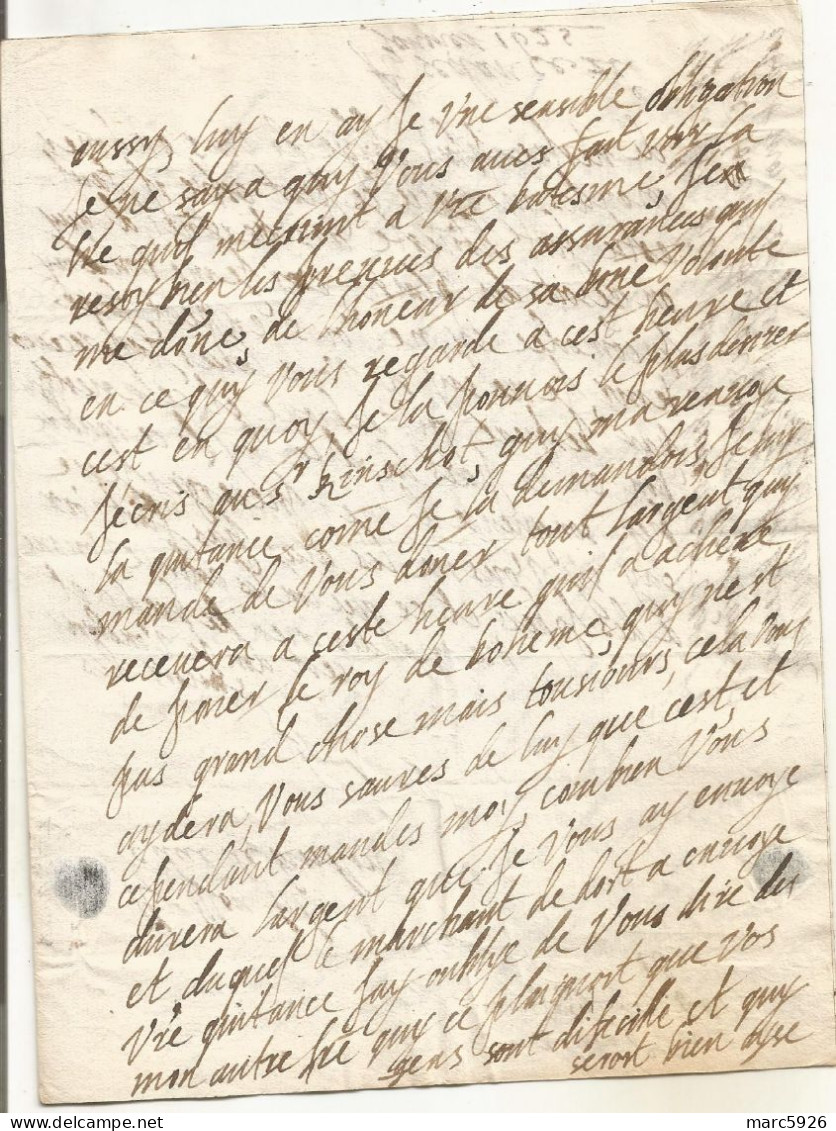 aussy, luy en ay je Une sensible obligation
Je ne say a quy Vous aues fait voir la
lre quil mecriuit a Vre batesme, Jen
me done, de lhoneur de sa bone Volonte
en ce quy Vous regarde a cest heure et
cest en quoy Je la
Jecris au sr kinschot, quy ma renuoye
la quitance come Je la demandois, Je luy
mande de Vous doner tout largent quy
receuera a ceste heure quil a acheue
de le roy de boheme, quy nest
pas grand chose mais tousiours, cela Vous
aydera, Vous saures de luy que cest, et
cependant mandes moy, combien Vous
durera largent que Je Vous ay enuoye
et duquel le marchant de dort a enuoye
Vre quitance Jay oublye de Vous dire de
mon autre lre quy ce plaignoit que Vos
gens sont dificille et quy
seroit bien ayse
marc5926